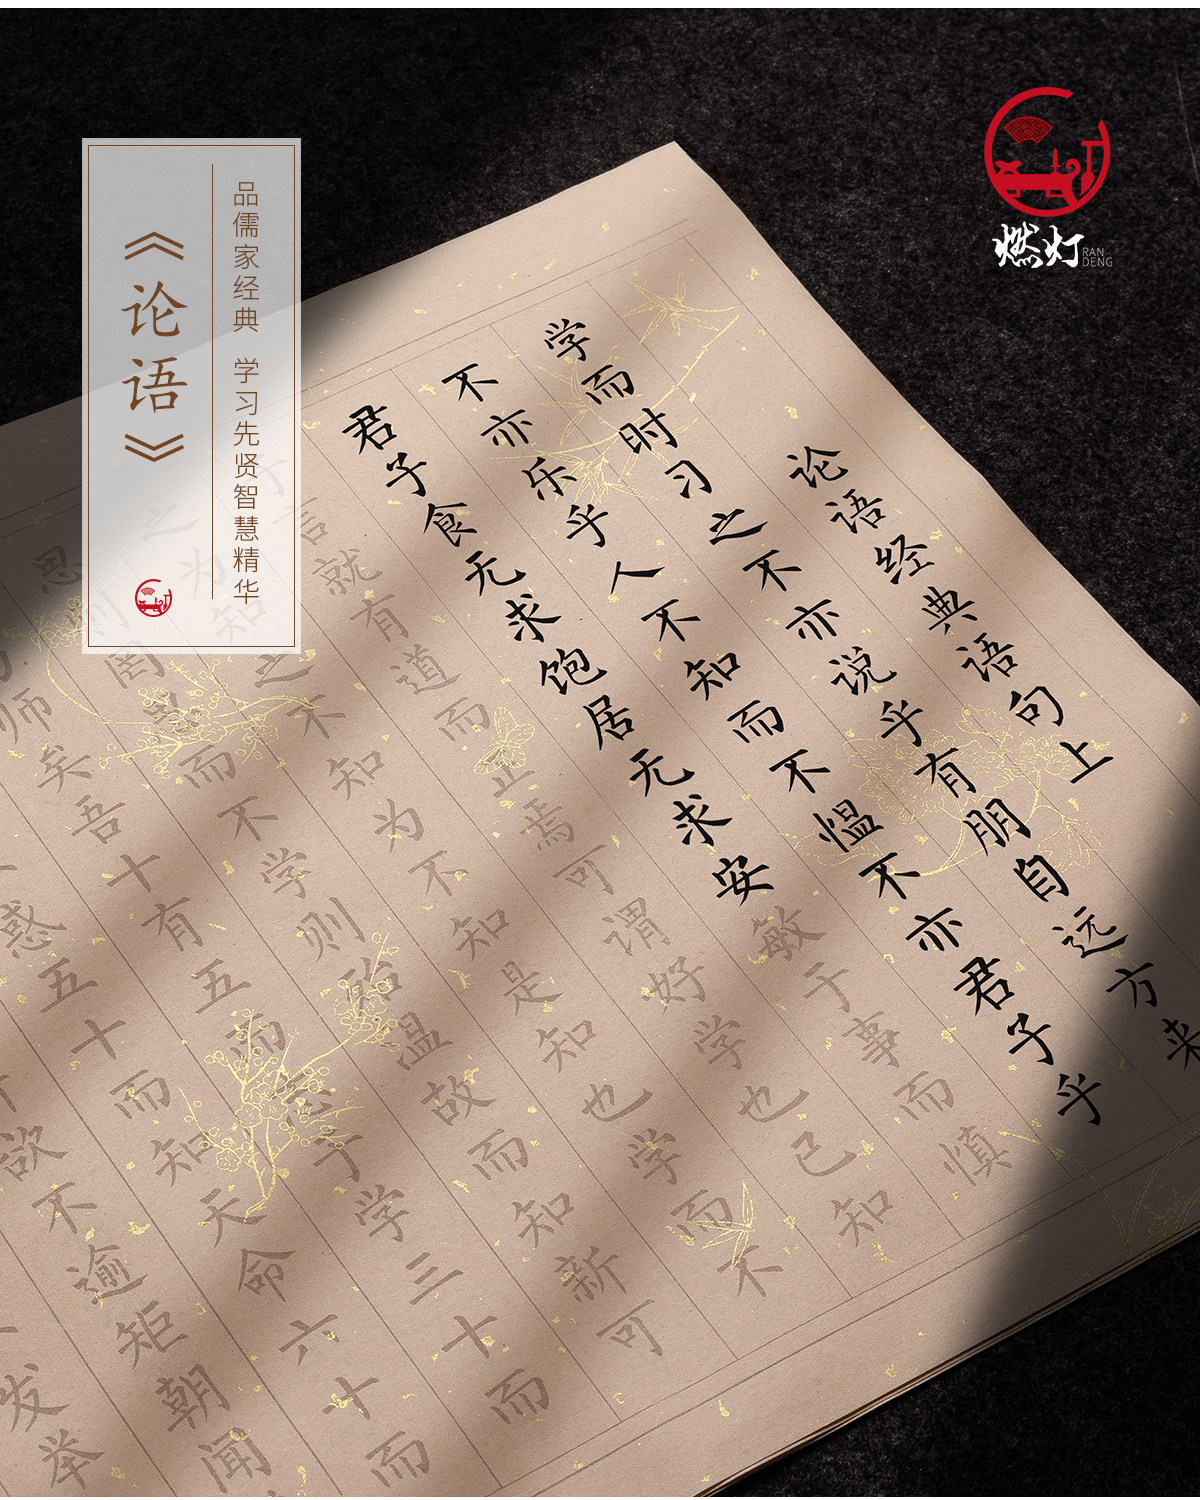 《论语》
品儒家经典 学习先贤智慧精华
燃灯
RAN
DENG
论语经典语句上
学而时习之不亦说乎有朋自远方来
不亦乐乎人不知而不愠不亦君子乎
君子食无求饱居无求安敏于事而慎
于言就有道而正焉可谓好学也已知
之为知之不知为不知是知也学而不
思则罔思而不学则殆温故而知新可
为师矣吾十有五而志于学三十而
惑五十而知天命六十而
欲不逾矩朝闻
发举